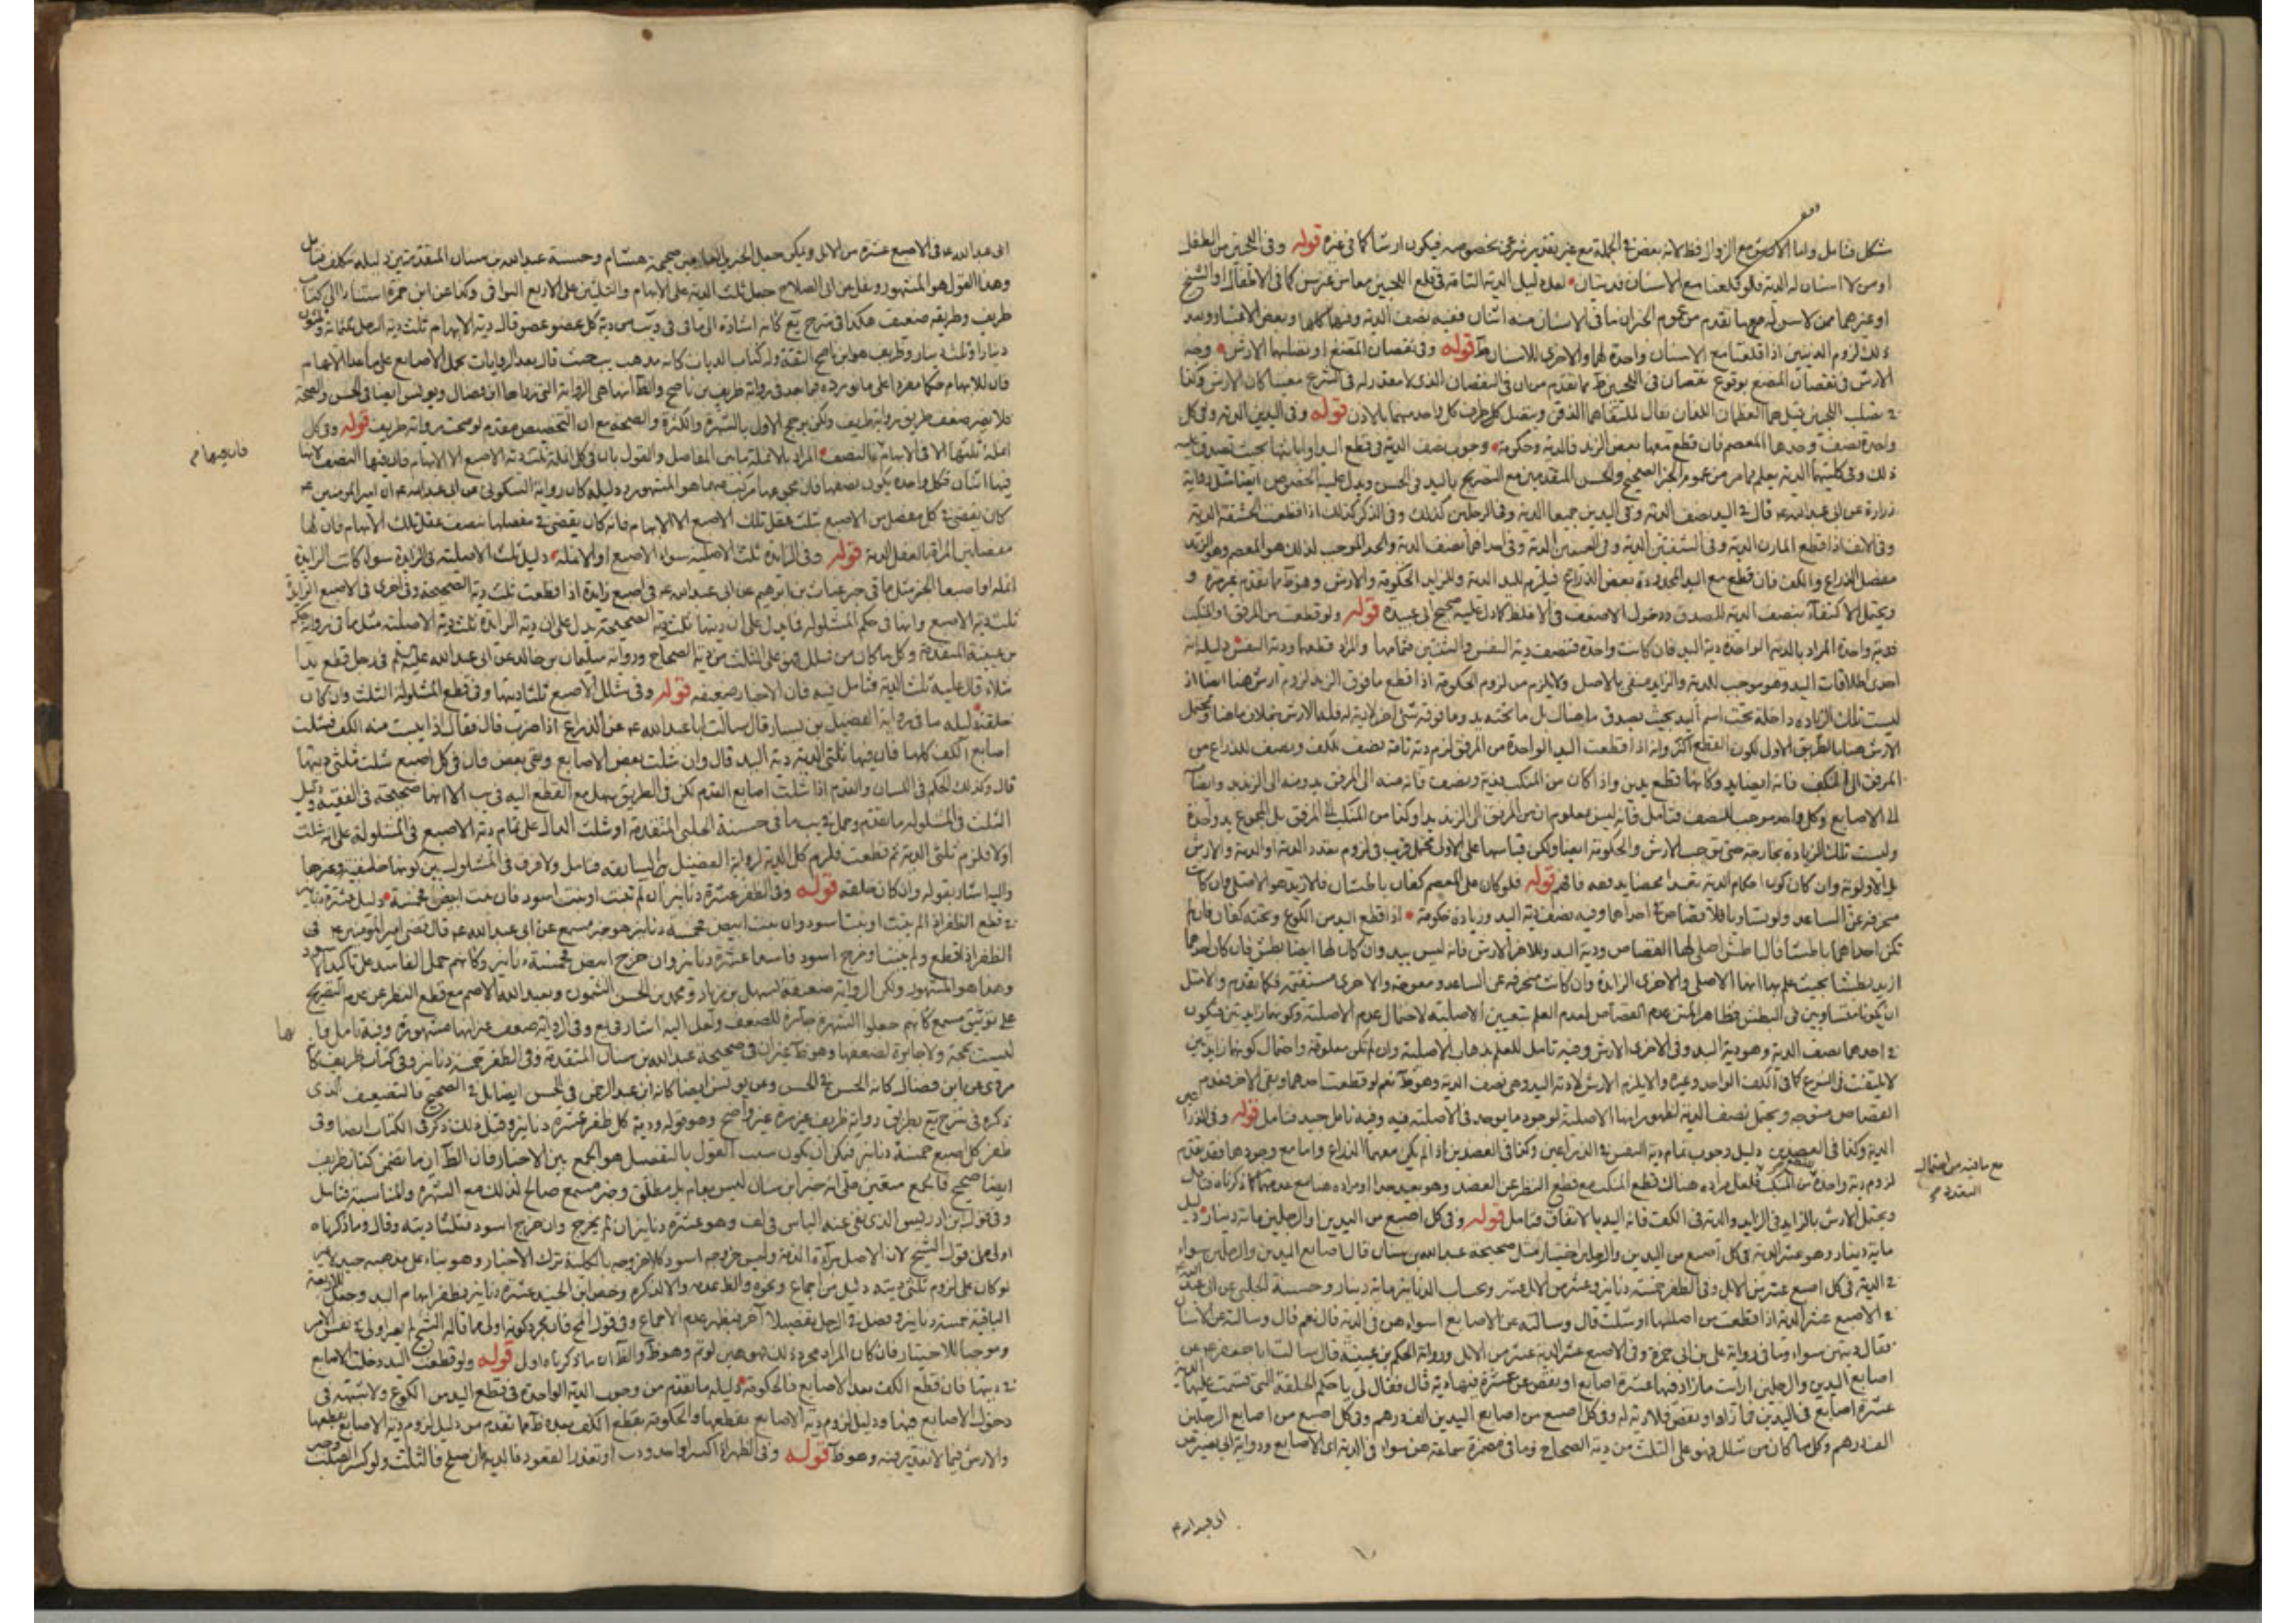 مشكل فتامل واما الارش مع الزوال فظ لانه نقص في الجملة مع غير تقدير شرعي بخصوصه فيكون ارشا كما في غيره قوله وفي اللحيين من الطفل
او من لا اسنان له الدية فلو قلعتا مع الاسنان فديتان لعل دليل الدية التامة في قلع اللحيين معا من غير سن كما في الاطفال او الشيخ
او غيرهما ممن لا سن له مع ما تقدم من عموم الخبر ان ما في الانسان منه اثنان ففيه نصف الدية وفيهما كلها وبعض الاعتبار وبعد
ذلك لزوم الديتين اذا قلعتا مع الاسنان واحدة لهما والاخرى للاسنان ظ قوله وفي نقصان المضغ او تصلبهما الارش وجه
الارش في نقصان المضغ بوقوع نقصان في اللحيين ظ مما تقدم من ان في النقصان الذي لا مقدر له في الشرع معينا كان الارش وكذا
في تصلب اللحيين قيل هما العظمان اللذان يقال لملتقاهما الذقن ويتصل كل طرف كل واحد منهما بالاذن قوله وفي اليدين الدية وفي كل
واحدة نصف وحدها المعصم فان قطع معها بعض الزند فالدية وحكومة وجوب نصف الدية في قطع اليد او ابانتها بحيث تصدق عليه
ذلك وفي كلتيهما الدية يعلم مما مر من عموم الخبر الصحيح والحسن المتقدمين مع التصريح باليد في الحسن ويدل عليه بالخصوص ايضا مثل رواية
زرارة عن ابي عبد الله ع قال في اليد نصف الدية وفي اليدين جميعا الدية وفي الرجلين كذلك وفي الذكر كذلك اذا قطعت الحشفة الدية
وفي الانف اذا قطع المارن الدية وفي الشفتين الدية وفي العينين الدية وفي احداهما نصف الدية والحد الموجب لذلك هو المعصم وهو الزند
مفصل الذراع والكف فان قطع مع اليد المحدودة بعض الذراع فيلزم لليد الدية وللزايد الحكومة والارش وهو ظ مما تقدم غير مرة و
ويحتمل الاكتفاء بنصف الدية للصدق ودخول الاضعف في الاغلظ كما دل عليه صحيح ابي عبيدة قوله ولو قطعت من المرفق او المنكب
فدية واحدة المراد بالدية الواحدة دية اليد فان كانت واحدة فنصف دية النفس والثنتين فتمامها والمراد قطعها ودية النفس دليله انه
احدى اطلاقات اليد وهو موجب للدية والزايد منفي بالاصل ولا يلزم من لزوم الحكومة اذا قطع ما فوق الزند لزوم ارش هنا ايضا اذ
ليست تلك الزيادة داخلة تحت اسم اليد بحيث يصدق ما هناك بل ما تحته يد وما فوقه شئ اخر لا دية له فله الارش بخلاف ما هنا ويحتمل
الارش هنا بالطريق الاولى لكون القطع اكثر وانه اذا قطعت اليد الواحدة من المرفق لزم دية تامة نصف للكف ونصف للذراع من
المرفق الى الكف فانه ايضا يد وكانهما قطع يدين واذا كان من المنكب فدية ونصف فانه منه الى المرفق يد ومنه الى الزند يد وايضا
الى الاصابع وكل واحد موجب للنصف فتامل فانه ليس معلوم ان من المرفق الى الزند يدا وكذا من المنكب الى المرفق بل المجموع يد واحدة
وليست تلك الزيادة بخارجة حتى توجب الارش والحكومة ايضا ولكن قياسها على الاول محتمل قريب في لزوم تعدد الدية او الدية والارش
بل الاولوية وان كان كون احكام الدية تعبدا محضا يدفعه فافهم قوله فلو كان على المعصم كفان باطشتان فالازيد هو الاصلي فان كانت
منحرفة عن الساعد ولو تساويا فلا قصاص في احداهما وفيه نصف دية اليد وزيادة حكومة اذا قطع اليد من الكوع وتحته كفان فان لم
تكن احداهما باطشا فالباطش اصلي لها القصاص ودية اليد وللاخر الارش فانه ليس بيد وان كان لها ايضا بطش فان كان احدهما
ازيد بطشا بحيث علم بها انها الاصلي والاخرى الزايدة وان كانت منحرفة عن الساعد ومعوجة والاخرى مستقيمة فكما تقدم والا مثل
ان يكونا متساويين في البطش فظاهر المتن عدم القصاص لعدم العلم بتعيين الاصلية لاحتمال عدم الاصلية وكونهما زايدتين فيكون
في احدهما نصف الدية وهو دية اليد وفي الاخرى الارش وفيه تامل للعلم بذهاب الاصلية وان لم تكن معلومة واحتمال كونهما زايدتين
لا يلتفت في الشرع كما في الكف الواحد وغيره والا يلزم الارش لا دية اليد وهي نصف الدية وهو ظ نعم لو قطعت احدهما وبقي الاخر فعدم
القصاص متوجه ويحتمل نصف الدية لظهور انها الاصلية لوجود ما يوجد في الاصلية فيه وفيه تامل جيد فتامل قوله وفي الذراعين
الدية وكذا في العضدين دليل وجوب تمام دية النفس في الذراعين وكذا في العضدين اذا لم يكن معهما الذراع واما مع وجودها فقد تقدم
لزوم دية واحدة من المنكب فلعل مراده هناك قطع المنكب مع قطع النظر عن العضد وهو بعيد جدا او مراده هنا مع عدمهما كما ذكرناه فتامل
ويحتمل الارش بالزايد في الزايد والدية في الكف فانه اليد بالاتفاق فتامل قوله وفي كل اصبع من اليدين او الرجلين مائة دينار دليل
ماية دينار وهو عشر الدية في كل اصبع من اليدين والرجلين اخبار مثل صحيحة عبد الله بن سنان قال اصابع اليدين والرجلين سواء
في الدية في كل اصبع عشر من الابل وفي الظفر خمسة دنانير وعشر من الابل عشر وبحساب الدنانير ماية دينار وحسنة الحلبي عن ابي عبد
في الاصبع عشر الدية اذا قطعت من اصلها او شلت قال وسالته عن الاصابع اسواء هن في الدية قال نعم قال وسالته عن الاسنان
فقال ديتهن سواء وما في رواية علي بن ابي حمزة وفي الاصبع عشر الدية عشر من الابل ورواية الحكم بن عتيبة قال سالت ابا جعفر ع عن
اصابع اليدين والرجلين ارايت ما زاد فيها عشرة اصابع او نقص عن عشرة فيها دية قال فقال لي يا حكم الخلقة التي قسمت عليها الدية
عشرة اصابع في اليدين فما زاد او نقص فلا دية له وفي كل اصبع من اصابع اليدين الف درهم وفي كل اصبع من اصابع الرجلين
الف درهم وكل ما كان من شلل فهو على الثلث من دية الصحاح وما في مضمرة سماعة هن سواء في الدية اي الاصابع ورواية ابي بصير عن
مع ما فيه من احتمال
التعدد
ابي عبد الله ع في الاصبع عشرة من الابل ويمكن حمل الخبر
وهذا القول هو المشهور ونقل عن ابي الصلاح جعل ثلث الدية على الابهام والثلثين على الاربع البواقي وكذا عن ابن حمزة استنادا الى كتاب
ظريف وطريقه ضعيف هكذا في شرح يع كانه اشارة الى ما في
دينارا وثلث دينار وظريف هو ابن ناصح الثقة وله كتاب الديات كانه مذهب يب حيث قال بعد الروايات تحمل الاصابع على ما عدا الابهام
فان للابهام حكما مفردا على ما نورده فيما بعد في رواية ظريف بن ناصح والظ انها هي الرواية التي رواها ابن فضال ويونس ايضا في الحسن والصحة
فلا يضر ضعف طريق رواية ظريف ولكن يرجح الاول بالشهرة والكثرة والصحة مع ان التخصيص مقدم لو صحت رواية ظريف قوله وفي كل
انملة ثلثها الا في الابهام فالنصف المراد بالانملة ما بين المفاصل والقول بان في كل انملة ثلث دية الاصبع الا الابهام فان فيها النصف لانها
فيها اثنان فكل واحدة يكون نصفها فان مجموعها مركب منهما هو المشهور ودليله كان رواية السكوني عن ابي عبد الله ع ان امير المؤمنين ع
كان يقضي في كل مفصل من الاصبع بثلث عقل تلك الاصبع الا الابهام فانه كان يقضي في مفصلها بنصف عقل تلك الابهام فان لها
مفصلين المراد بالعقل الدية قوله وفي الزائدة ثلث الاصلية سواء الاصبع او الانملة دليل ثلث الاصلية في الزايدة سواء كانت الزايدة
انملة او اصبعا الخبر مثل ما في خبر غياث بن ابرهيم عن ابي عبد الله ع في اصبع زايدة اذا قطعت ثلث دية الصحيحة وفي اخرى في الاصبع الزايدة
ثلث دية الاصبع وانها في حكم المشلولة فما يدل على ان ديتها ثلث دية الصحيحة يدل على ان دية الزايدة ثلث دية الاصلية مثل ما في رواية حكم
بن عتيبة المتقدمة وكل ما كان من شلل فهو على الثلث من دية الصحاح ورواية سليمان بن خالد عن ابي عبد الله عليه السلام في رجل قطع يدا
شلاء قال عليه ثلث الدية فتامل فيه فان الاخبار ضعيفة قوله وفي شلل الاصبع ثلثا ديتها وفي قطع المشلولة الثلث وان كان
خلقة دليله ما في رواية الفضيل بن يسار قال سالت ابا عبد الله ع عن الذراع اذا ضرب قال فقال اذا يبست منه الكف فشلت
اصابع الكف كلها فان فيها ثلثي الدية دية اليد قال وان شلت بعض الاصابع وبقى بعض فان في كل اصبع شلت ثلثي ديتها
قال وكذلك الحكم في الساق والقدم اذا شلت اصابع القدم لكن في الطريق سهل مع القطع اليه في يب الا انها صحيحة في الفقيه ودليل
الثلث في المشلولة ما تقدم وحمل في يب ما في حسنة الحلبي المتقدمة او شلت الدال على تمام دية الاصبع في المشلولة على انه شلت
اولا فلزم ثلثي الدية ثم قطعت فلزم كل الدية لرواية الفضيل بن يسار السابقة فتامل ولا فرق في المشلول بين كونها خلقية وغيرها
واليه اشار بقوله وان كان خلقة قوله وفي الظفر عشرة دنانير ان لم تنبت او نبت اسود فان نبت ابيض فخمسة دليل عشرة دنانير
في قطع الظفر اذا لم ينبت او نبت اسود وان نبت ابيض خمسة دنانير هو خبر مسمع عن ابي عبد الله ع قال قضى امير المؤمنين ع في
الظفر اذا قطع ولم ينبت او خرج اسود فاسدا عشرة دنانير وان خرج ابيض فخمسة دنانير وكانهم حمل الفاسد على تاكيد الاسود
وهذا هو المشهور ولكن الرواية ضعيفة لسهل بن زياد ومحمد بن الحسن بن الشمون وعبد الله الاصم مع قطع النظر عن عدم التصريح
على توثيق مسمع كانهم جعلوا الشهرة جابرة للضعف ولعل اليه اشار في يع وفي الرواية ضعف غير انها مشهورة وفيه تامل فانها
ليست بحجة ولا جابرة لضعفها وهو ظ غير ان في صحيحة عبد الله بن سنان المتقدمة وفي الظفر خمسة دنانير وفي كتاب ظريف كما
مروى عن ابن فضال كانه الحسن في الحسن وعن يونس ايضا كانه ابن عبد الرحمن في الحسن ايضا بل في الصحيح فالتضعيف الذي
ذكره في شرح يع بطريق رواية ظريف غير مرة غير واضح وهو قوله ودية كل ظفر عشرة دنانير وقبل ذلك ذكر في الكتاب ايضا وفي
ظفر كل اصبع خمسة دنانير فيمكن ان يكون سبب القول بالتفصيل هو الجمع بين الاخبار فان الظ ان ما تضمن كتاب ظريف
ايضا صحيح فالجمع متعين على انه خبر ابن سنان ليس بعام بل مطلق وخبر مسمع صالح لذلك مع الشهرة والمناسبة فتامل
وفي قول ابن ادريس الذي نفى عنه الباس في لف وهو عشرة دنانير ان لم يخرج وان خرج اسود فثلثا ديته وقال وما ذكرناه
اولى من قول الشيخ لان الاصل براءة الذمة وليس خروجه اسود كلا خروجه بالكلية ترك الاخبار وهو بناء على مذهبه جيد
لو كان على لزوم ثلثي ديته دليل من اجماع ونحوه والظ عدمه والا لذكره وخص ابن الجنيد عشرة دنانير بظفر ابهام اليد وجعل للاربعة
الباقية خمسة دنانير وفصل في الرجل تفصيلا اخر فيظهر عدم الاجماع وفي قول الخ فان مجرد كونه اولى مما قاله الشيخ لم يصر اولى في نفس الامر
وموجبا للاختيار فان كان المراد مجرد ذلك فهو هين لو تم وهو ظ والظ ان ما ذكرناه اولى قوله ولو قطعت اليد دخلت الاصابع
في ديتها فان قطع الكف بعد الاصابع فالحكومة دليله ما تقدم من وجوب الدية الواحدة في قطع اليد من الكوع ولا شبهة في
دخول الاصابع فيها ودليل لزوم دية الاصابع بقطعها والحكومة بقطع الكف بعده ظ مما تقدم من دليل لزوم دية الاصابع بقطعها
والارش فيما لا تقدير فيه وهو ظ قوله وفي الظهر اذا كسر او احدودب او تعذر القعود فالدية فان صلح فالثلث ولو كسر الصلب